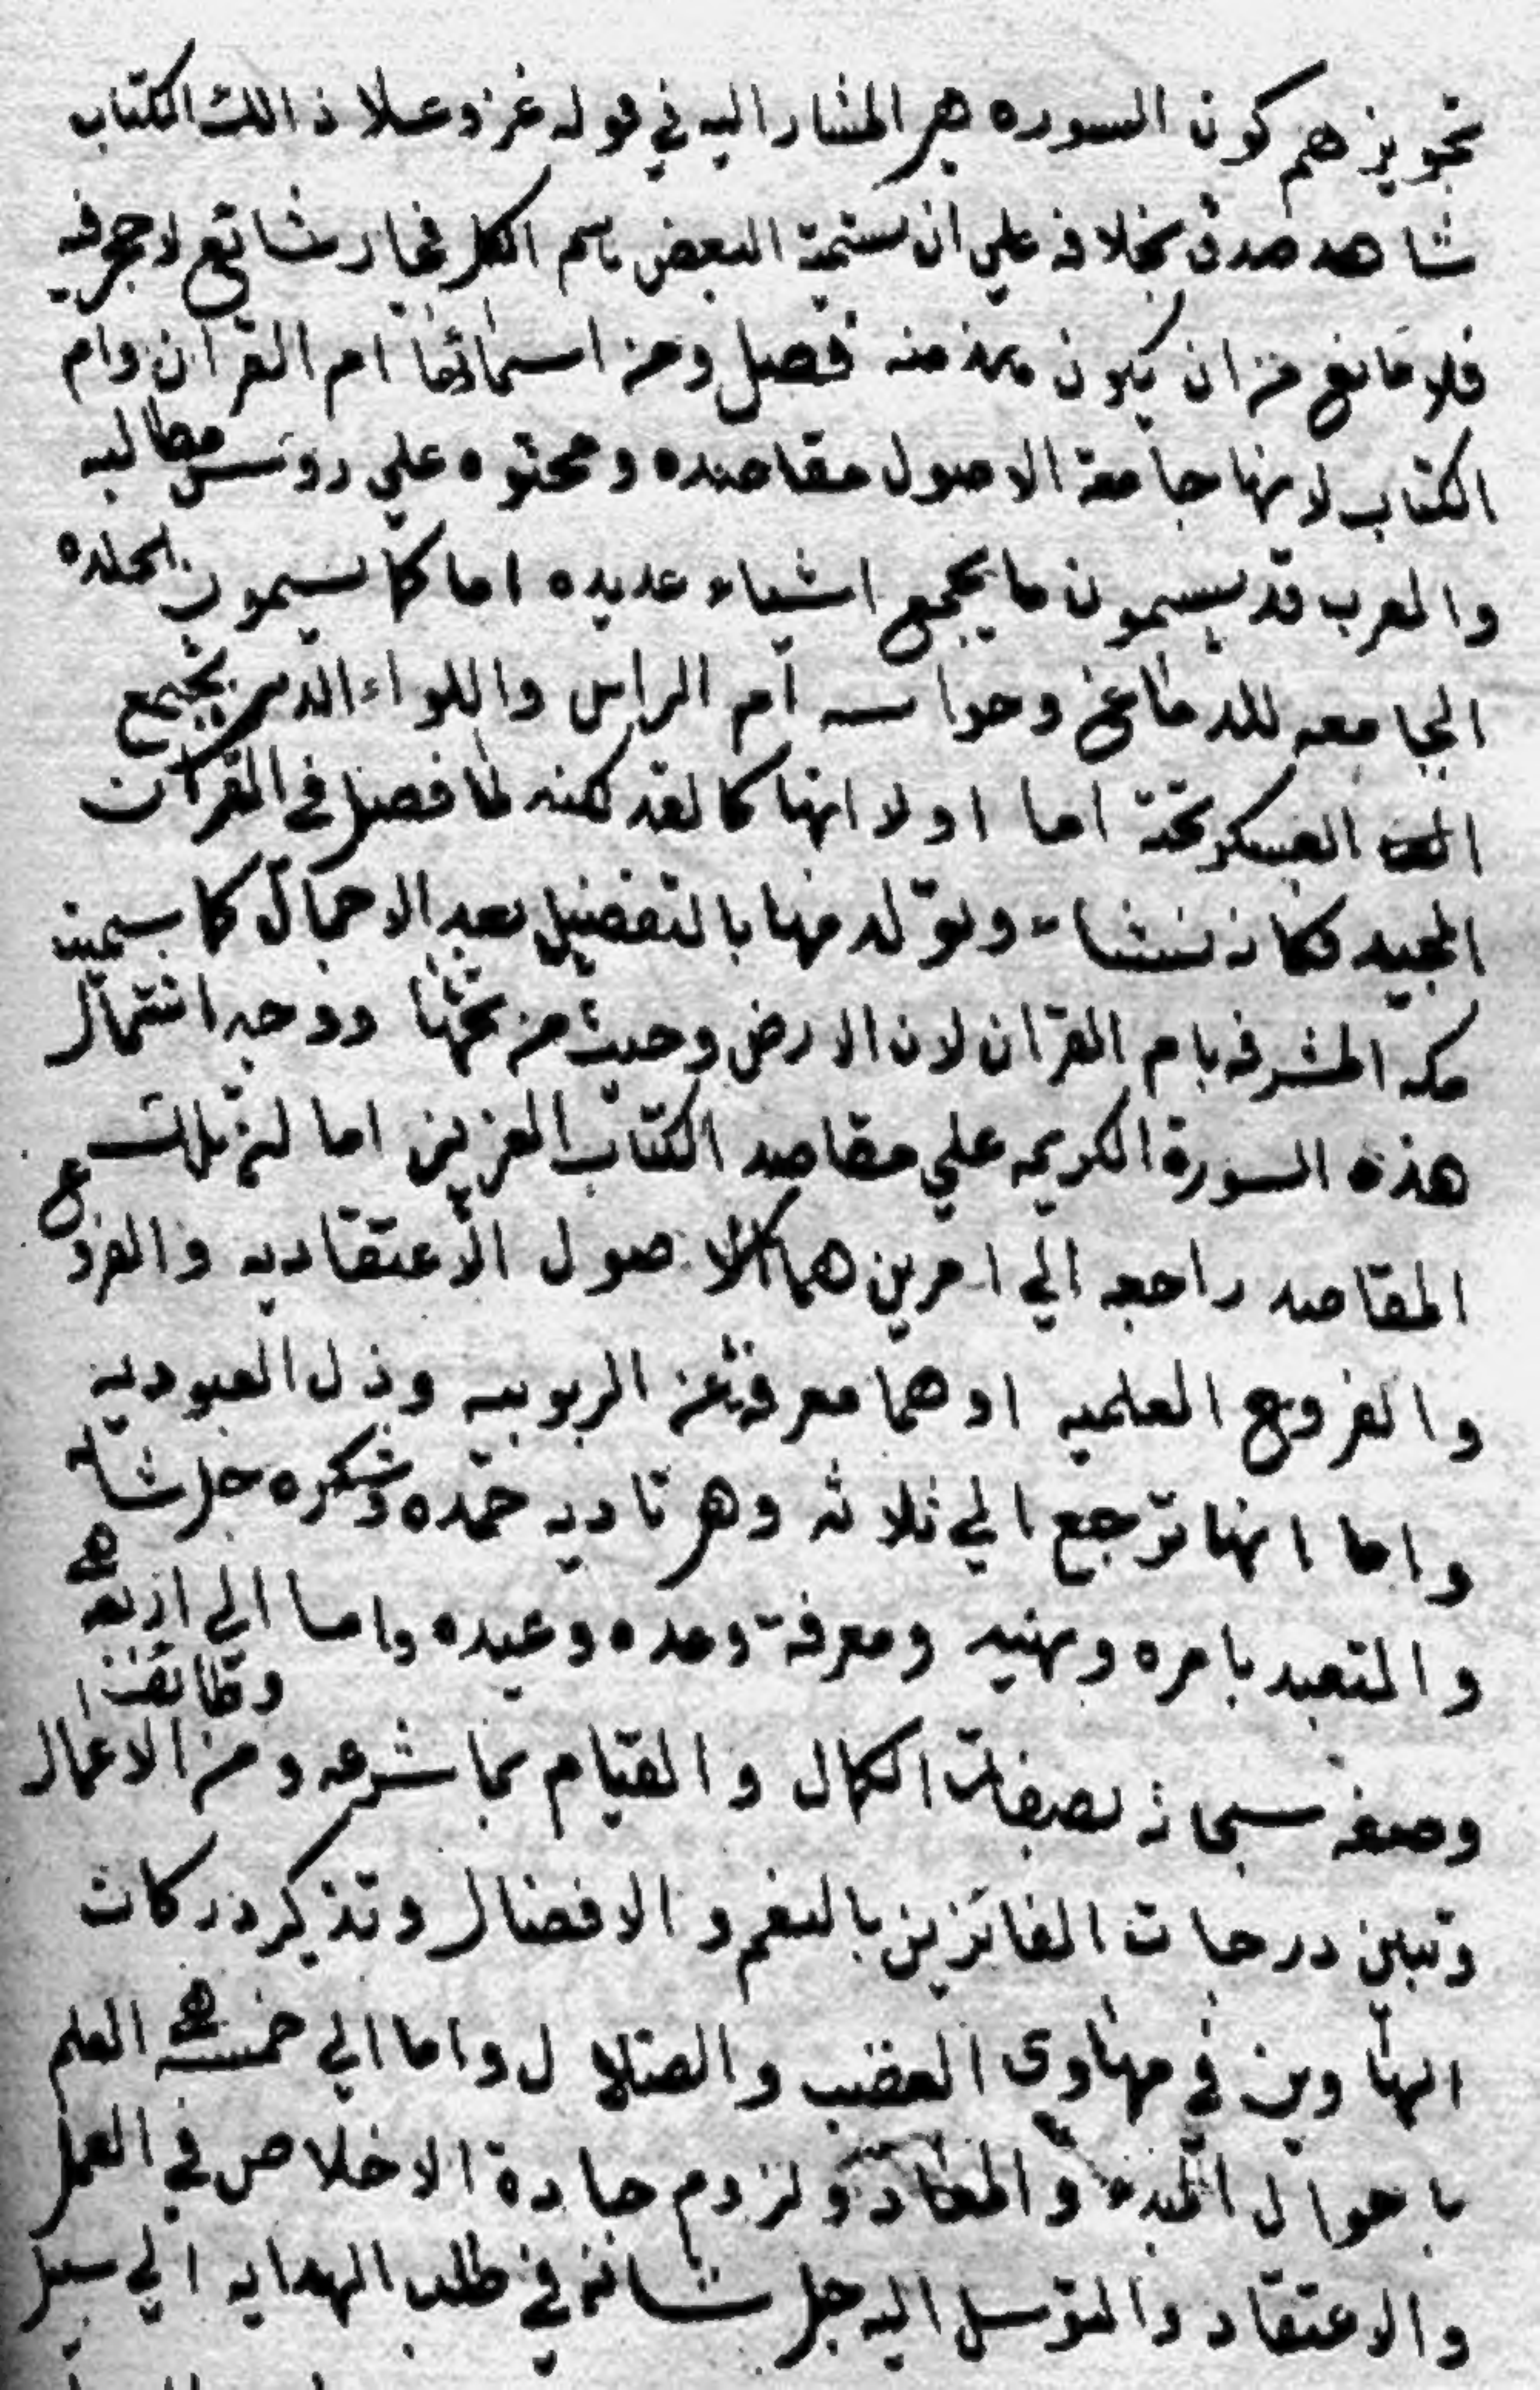 تجويزهم كون السوره هي المشار اليه في قوله عز وعلا ذالك الكتاب
شاهد صدق بخلافه علي ان تستمية البعض باسم الكل مجاز شائع لا حجر فيه
فلا مانع من ان يكون هذا منه فصل ومن اسمائها ام القران وام
الكتاب لانها جامعة الاصول مقاصده ومحتوه علي روس مطالبه
والعرب قد يسمون ما يجمع اشياء عديده اما كما يسمون الجلده
الجامعه للدماغ وحواسه ام الراس واللواء الذي يجتمع
العسكر تحته اما اولا انها كالفذلكنه لما فصل في القرآن
المجيد فكانه نشاء وتولد منها بالتفضيل بعد الاجمال كما سميت
مكه المشرفه بام القران لان الارض دحيت من تحتها ووجه اشتمال
هذه السورة الكريمه علي مقاصد الكتاب العزيز اما ان تلك
المقاصد راجعه الي امرين هما الاصول الاعتقاديه والفروع
والفروع العلميه او هما معرفة عز الربوبيه وذل العبوديه
واما انها ترجع الي ثلاثه وهي تاديه حمده وشكره جل شانه
والتعبد بامره ونهيه ومعرفة وعده وعيده واما الي اربعه
وظائف
وصفه سبحانه بصفات الكمال والقيام بما شرعه ومن الاعمال
وتبين درجات الفائزين بالنعم والافضال وتذكر دركات
الهاوين في مهاوى الغضب والضلال واما الي خمسه العلم
باحوال المبدء والمعاد ولزوم جادة الاخلاص في العمل
والاعتقاد والتوسل اليه جل شانه في طلب الهدايه الي سبيل